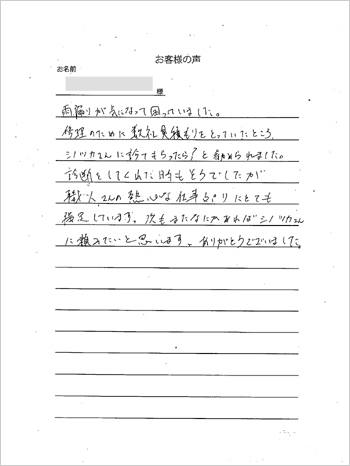 お客様の声
お名前
様
雨漏りが気になって困っていました。
修理のために数社見積もりをとっていたところ、
シノツカさんに診てもらったら?と勧められました。
診断をしてくれた日もそうでしたが
職人さんの熱心な仕事ぶりにとても
満足しています。次もまたなにかあればシノツカさん
に頼みたいと思います。ありがとうございました。